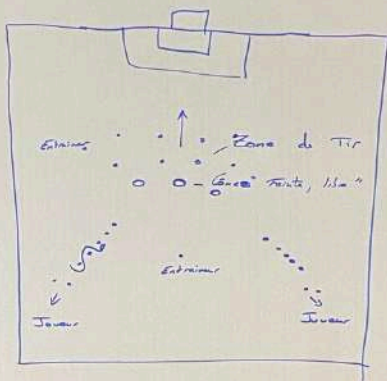 Entraineur
Zone de Tir
Cônes "Feinte, libre"
Entraineur
Joueur
Joueur